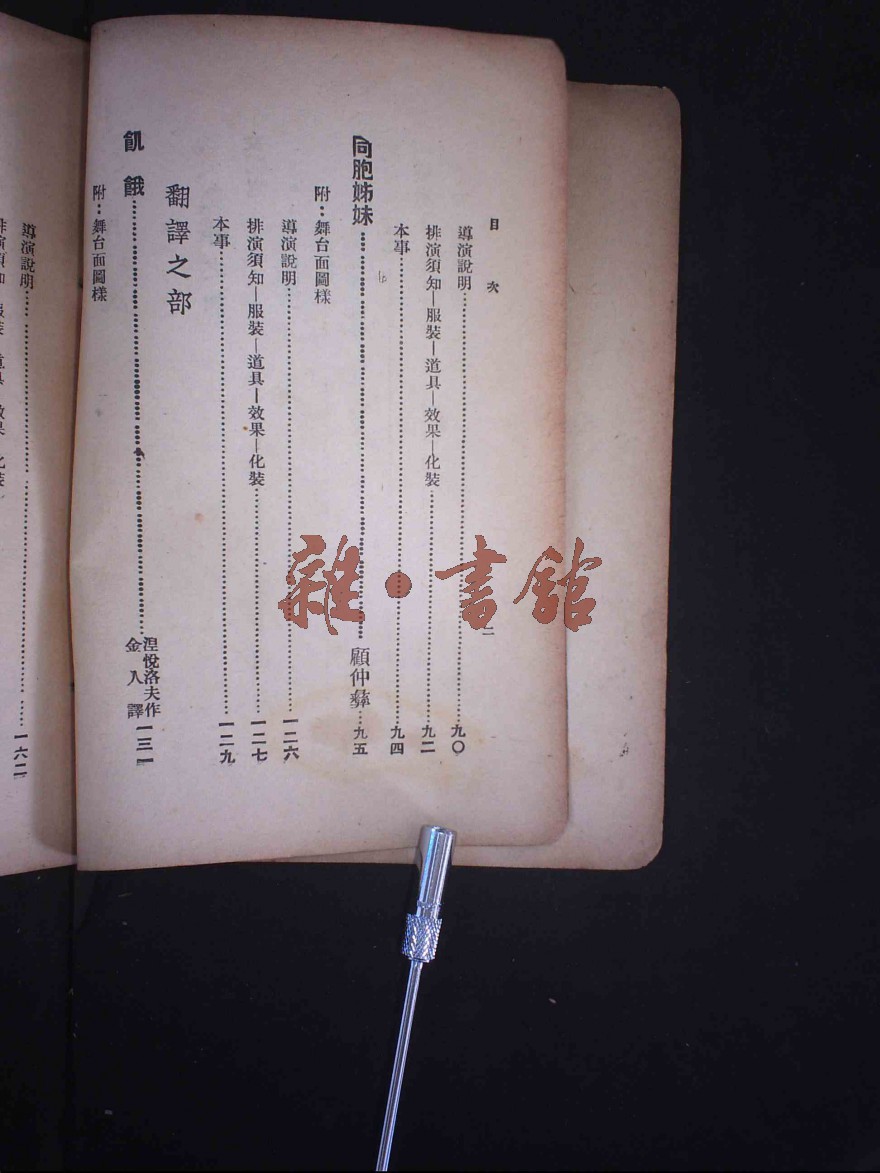 目次
二
導演說明……九〇
排演須知—服裝—道具—效果—化裝……九二
本事……九四
同胞姊妹……顧仲彝……九五
附：舞台面圖樣
導演說明……一二六
排演須知—服裝—道具—效果—化裝……一二七
本事……一二九
翻譯之部
飢餓……涅悅洛夫作 金人譯 一三一
附：舞台面圖樣
導演說明……一六二
雜·書館